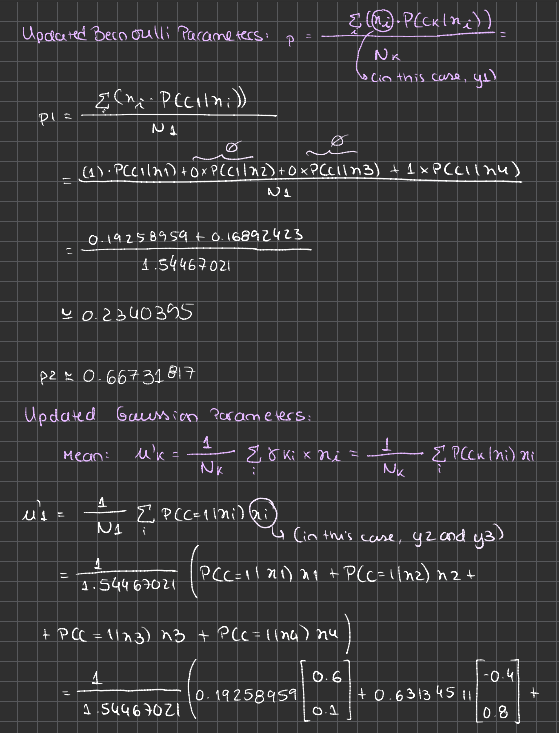 Updated Bernoulli Parameters: p = Σi (xi · P(Ck|xi)) / Nk =
(in this case, y1)
p1 = Σi (xi · P(C1|xi)) / N1
∅ ∅
= ((1) · P(C1|x1) + 0 × P(C1|x2) + 0 × P(C1|x3) + 1 × P(C1|x4)) / N1
= (0.19258959 + 0.16892423) / 1.54467021
≃ 0.2340395
p2 ≃ 0.66731817
Updated Gaussian Parameters:
Mean: u'k = 1/Nk Σi γki × xi = 1/Nk Σi P(Ck|xi) xi
u'1 = 1/N1 Σi P(C=1|xi) xi
(in this case, y2 and y3)
= 1/1.54467021 (P(C=1|x1) x1 + P(C=1|x2) x2 +
+ P(C=1|x3) x3 + P(C=1|x4) x4)
= 1/1.54467021 (0.19258959 [0.6 0.1] + 0.63134511 [-0.4 0.8] +